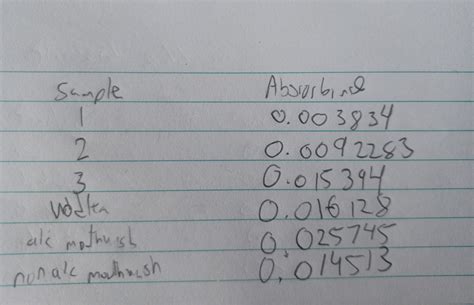 Sample Absorbine
1 0.003834
2 0.0092283
3 0.015394
Vodka 0.016128
alc mouthwash 0.025745
non alc mouthwash 0.014513